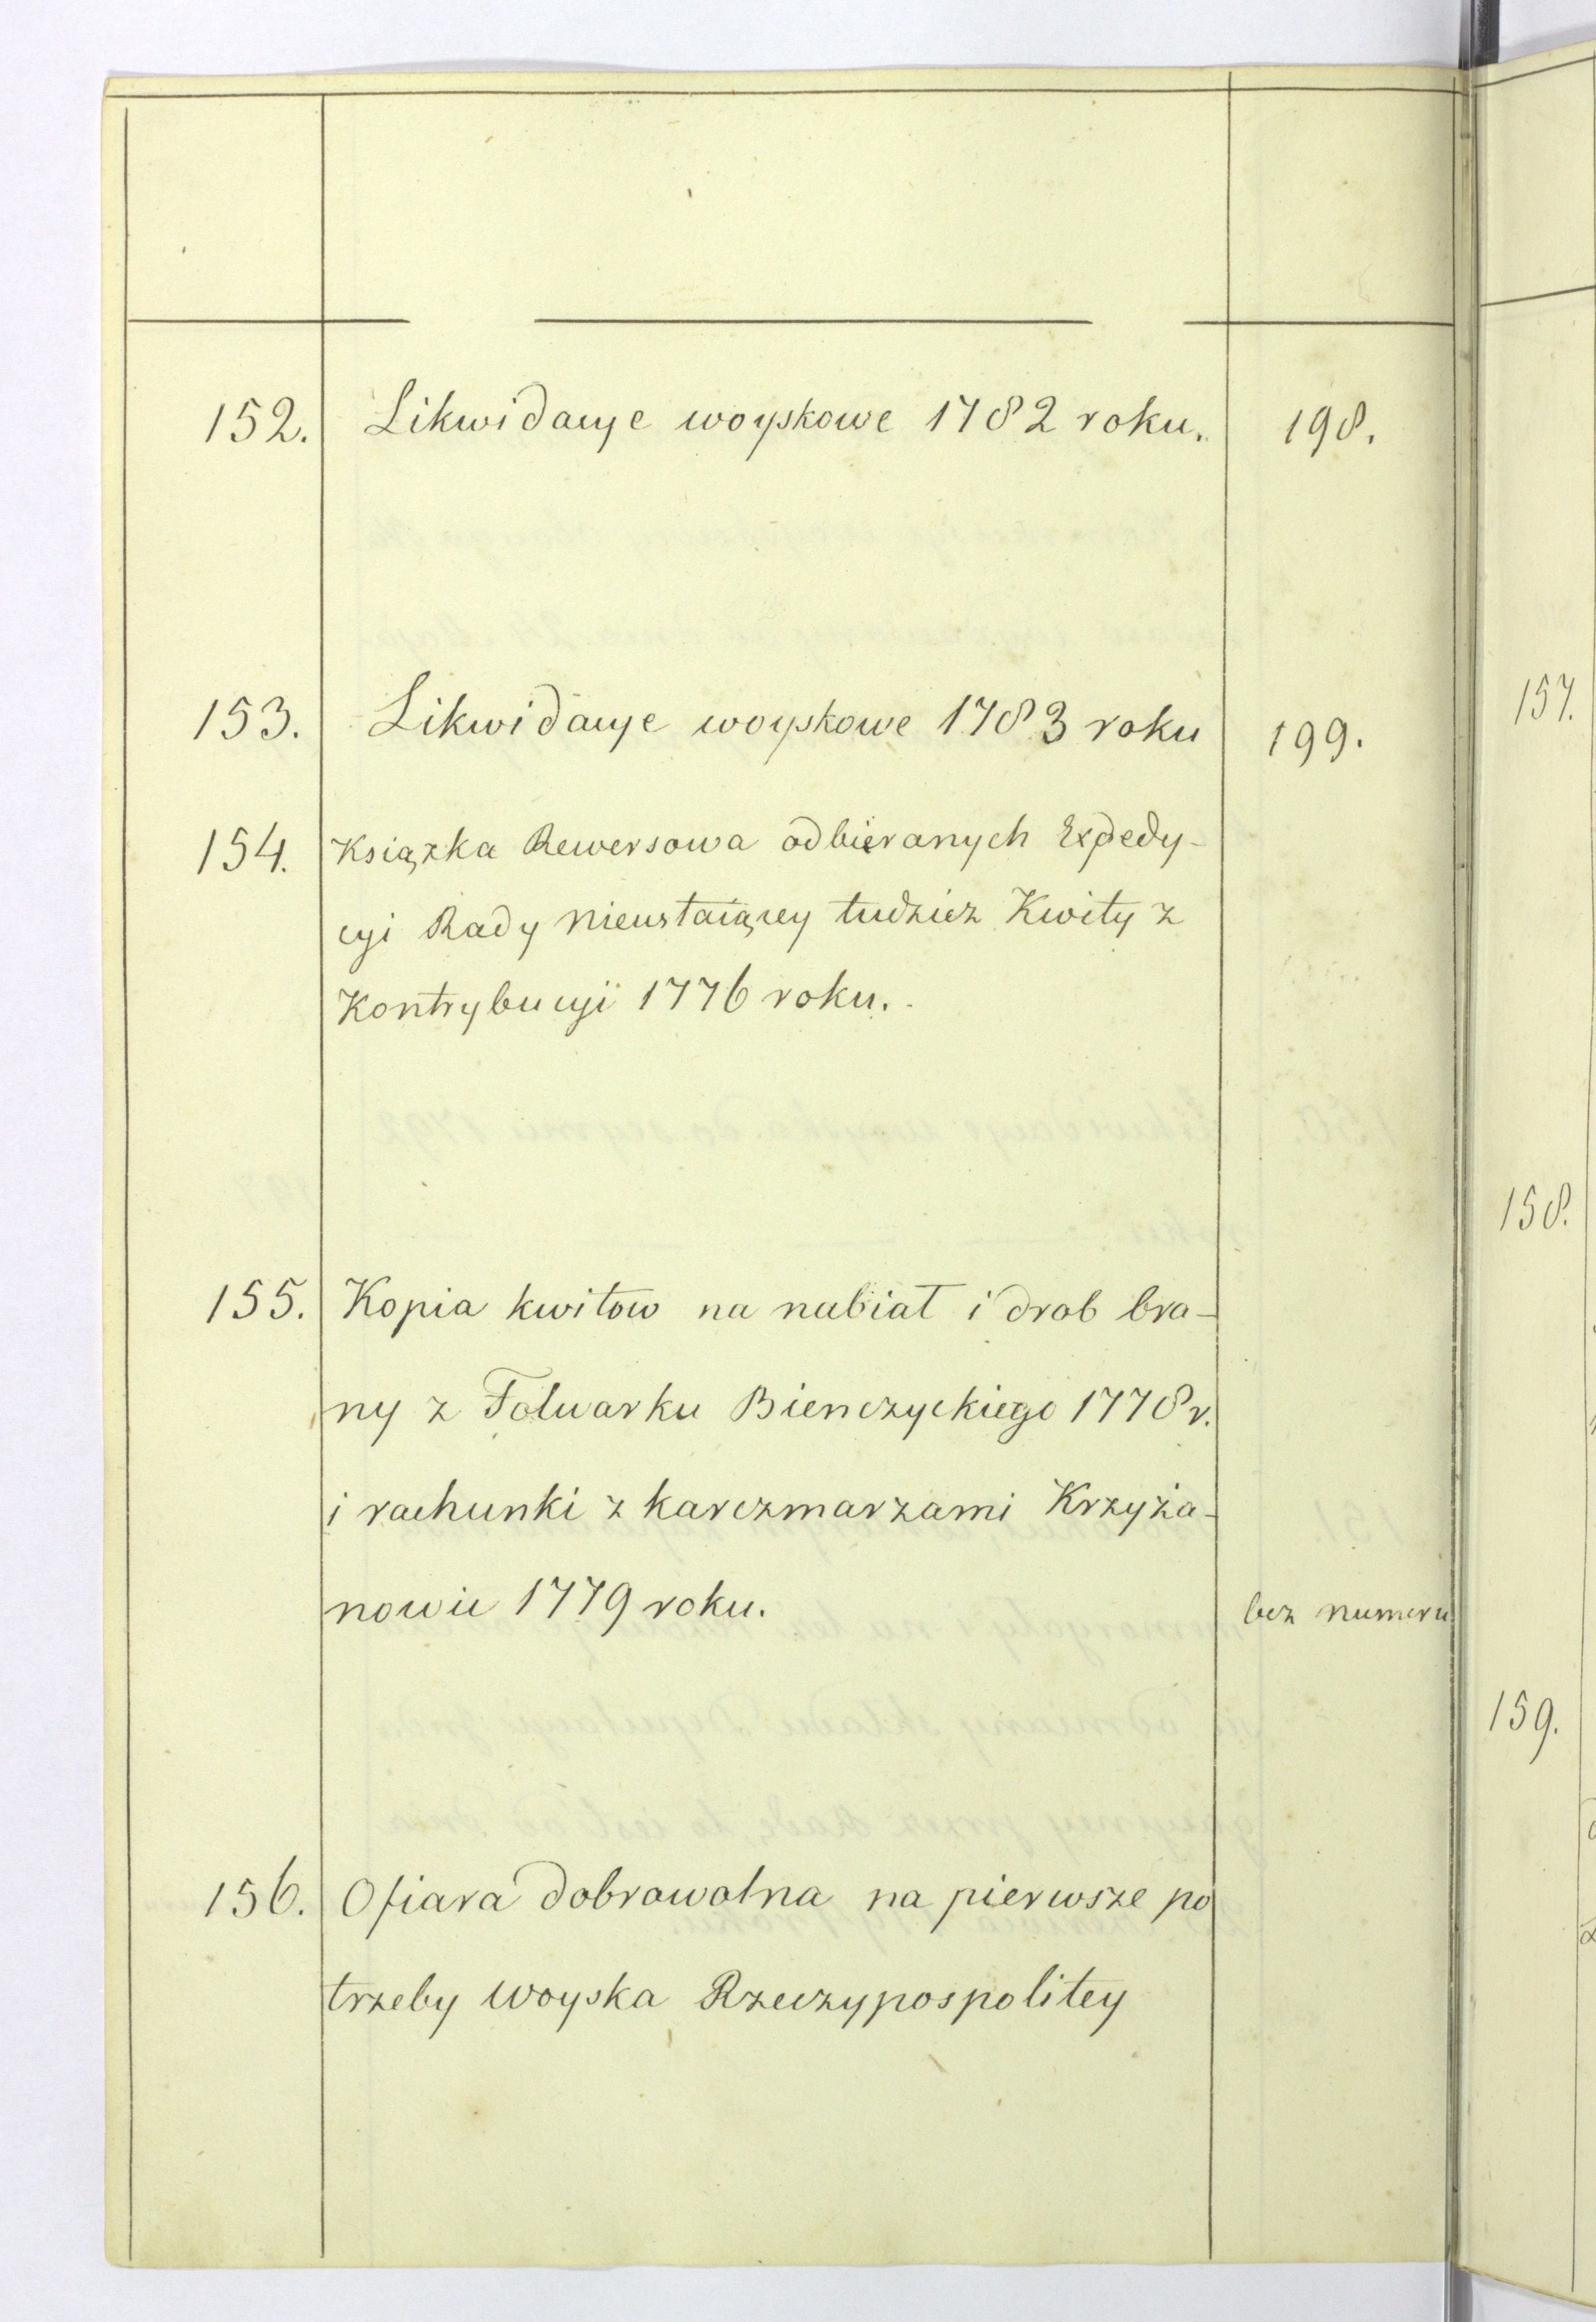 152. Likwidacye woyskowe 1782 roku. 198.
153. Likwidacye woyskowe 1783 roku 199.
154. Książka Rewersowa odbieranych Expedy-
cyi Rady Nieustaiącey tudziez Kwity z
Kontrybucyi 1776 roku.
155. Kopia kwitow na nabiał i drob bra-
ny z Folwarku Bienczyckiego 1778 r.
i rachunki z karczmarzami Krzyża-
nowic 1779 roku. bez numeru
156. Ofiara dobrowolna na pierwsze po
trzeby Woyska Rzeczypospolitey
157.
158.
159.